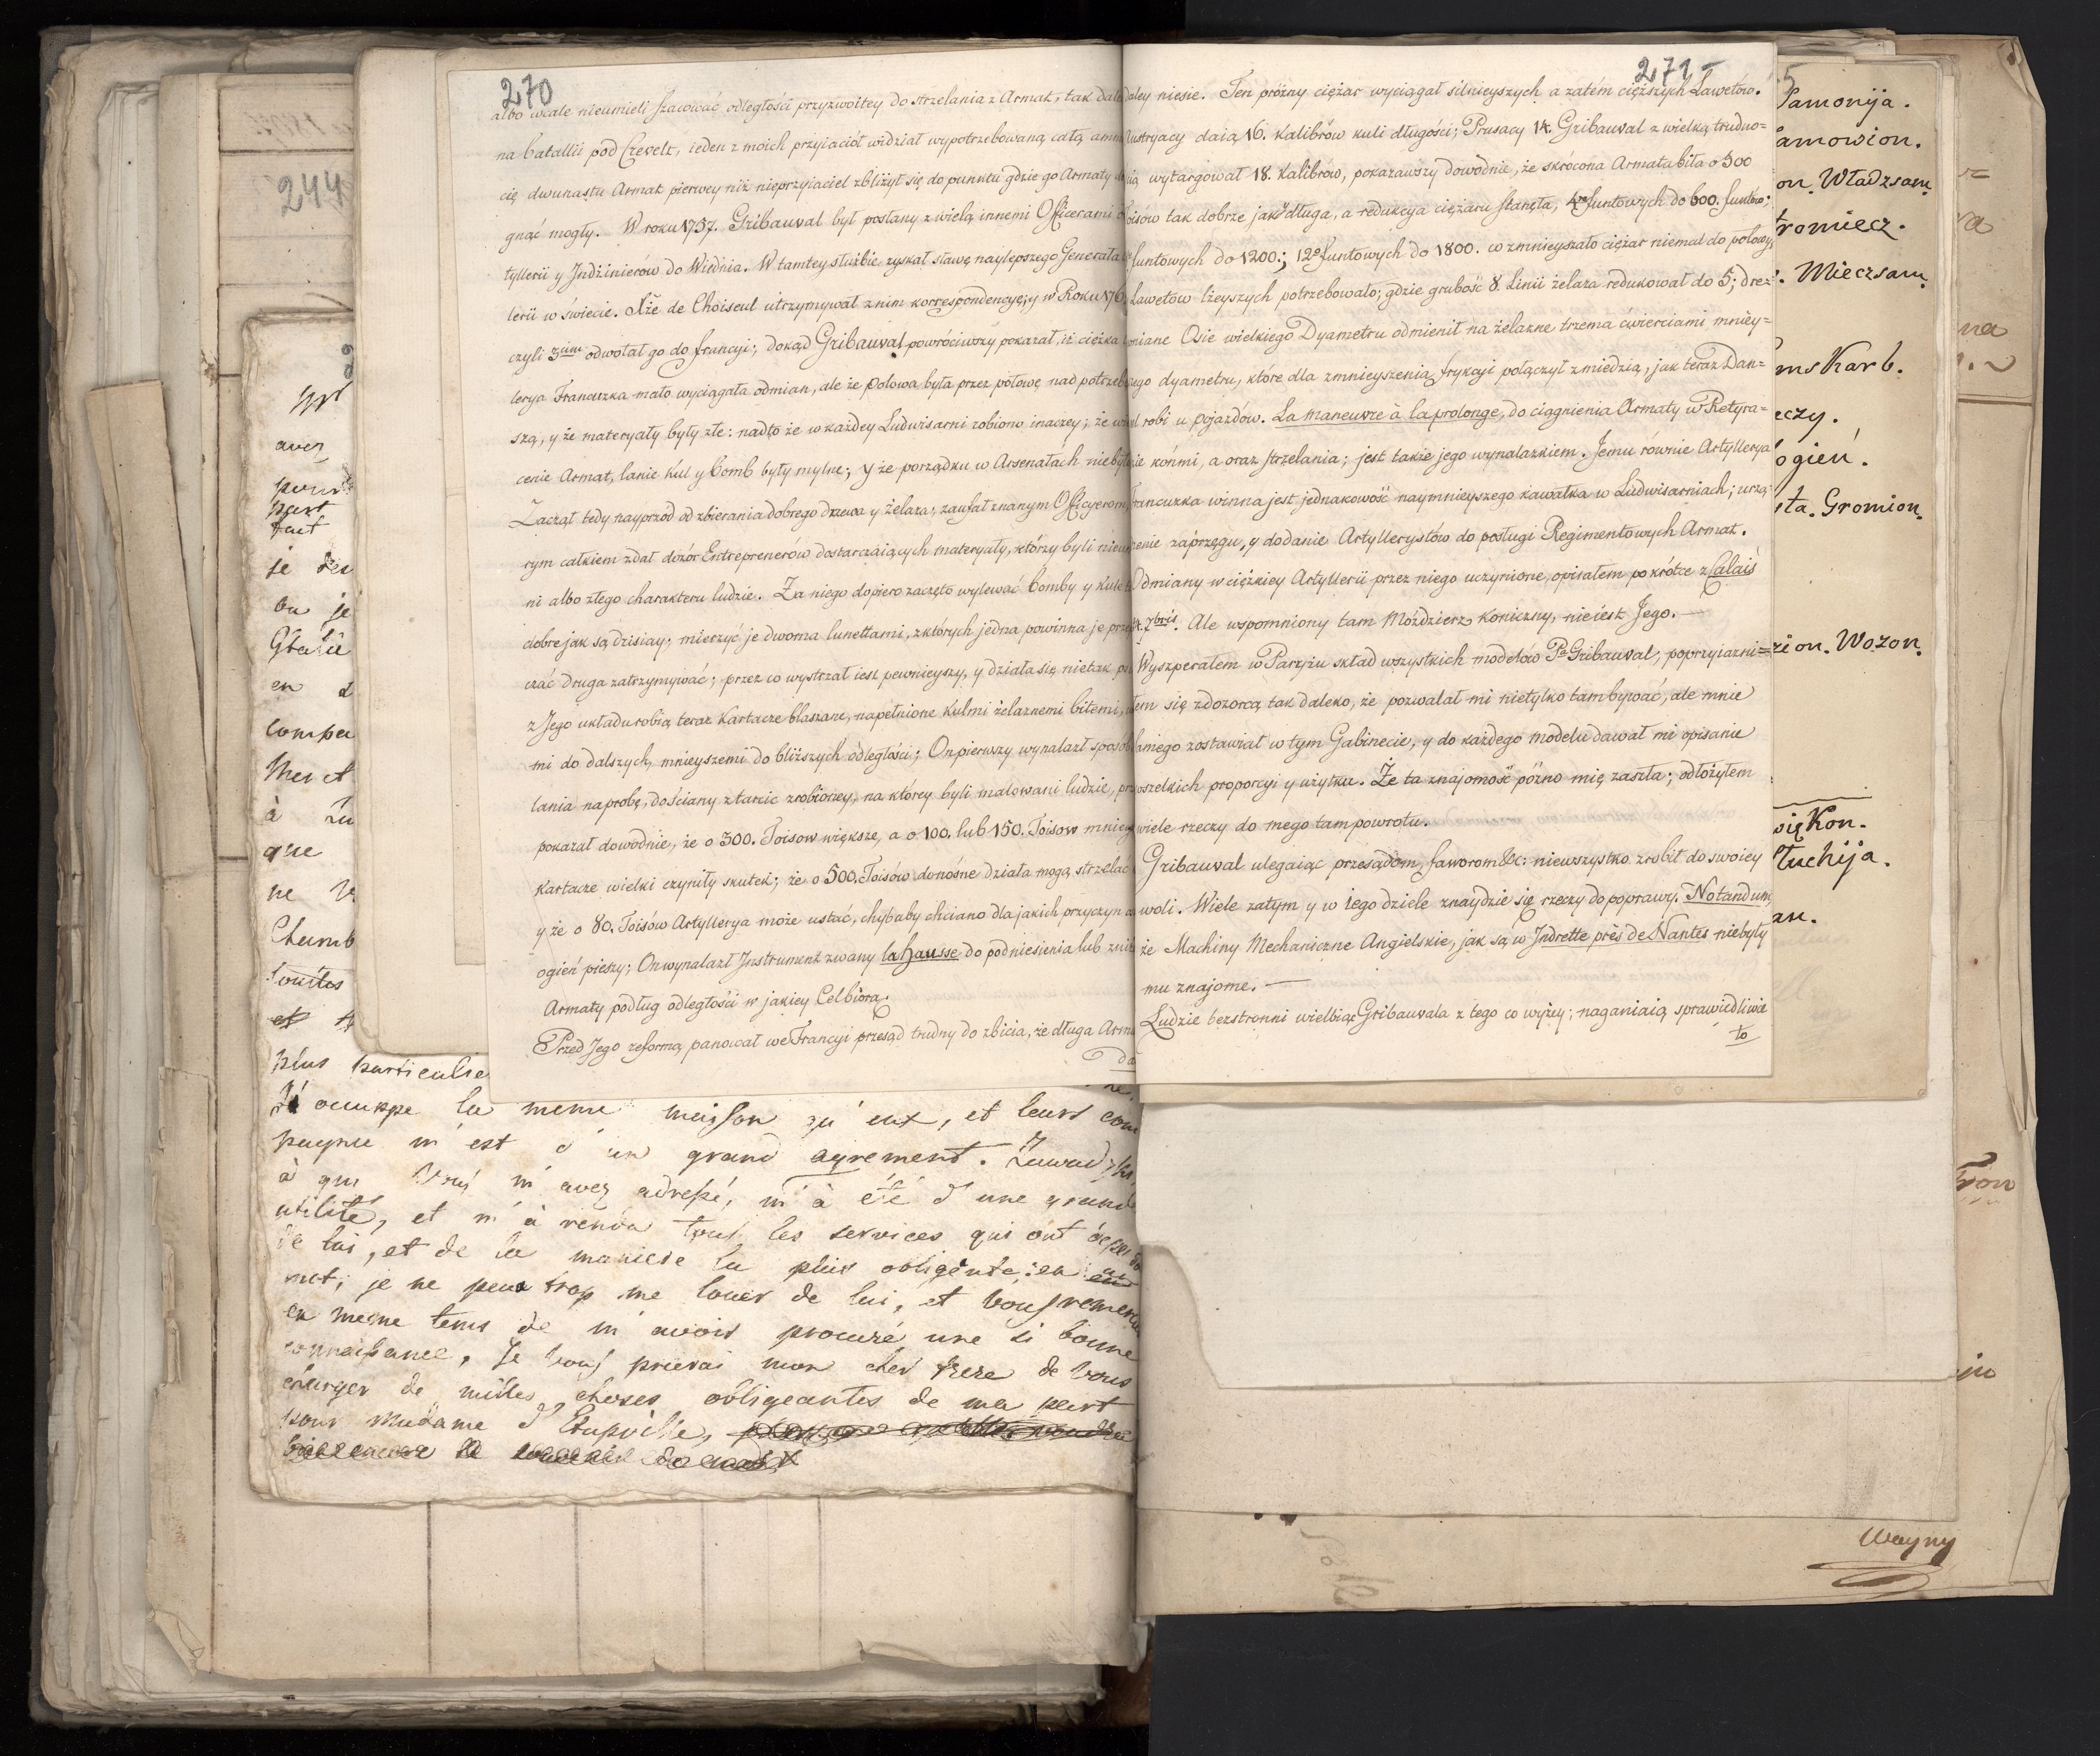 270
albo wcale nieumieli szacować odległości przyzwoitey do strzelania z Armat, tak dale
na batallii pod Crevelt, ieden z moich przyiaciół widział wypotrzebowaną całą amm
cię dwunastu Armat pierwey niż nieprzyiaciel zbliżył się do punktu gdzie go Armaty
gnąć mogły. W roku 1757. Gribauval był posłany z wielą innemi Officerami
tyllerii y Jndżinierów do Wiednia. W tamtey służbie zyskał sławę naylepszego Generała
lerii w świecie. Xże de Choiseul utrzymywał z nim korrespondencyę; y w Roku 176
czyli 3cim odwołał go do francyi; dokąd Gribauval powróciwszy pokazał, iż ciężka
lerya Francuzka mało wyciągała odmian, ale że polowa była przez połowę nad potrzeb
szą, y że materyały były złe: nadto że w każdey Ludwisarni robiono inaczey; że
cenie Armat, lanie kul y bomb były mylne; y że porządku w Arsenałach niebył
Zaczął tedy nayprzód od zbierania dobrego drzewa y żelaza; zaufał znanym Officyerom,
rym całkiem zdał dozór Entreprenerów dostarczaiących materyały, którzy byli nieu
ni albo złego charakteru ludzie. Za niego dopiero zaczęto wylewać bomby y kule
dobre jak są dzisiay; mierzyć je dwoma lunettami, z których jedna powinna je prze
czać druga zatrzymywać; przez co wystrzał iest pewnieyszy, y działa się nietak
z Jego układu robią teraz Kartacze blaszane, napełnione Kulmi żelaznemi bitemi,
mi do dalszych, mnieyszemi do bliższych odległości; On pierwszy wynalazł sposób
lania na probę, do ściany z tarcic zrobioney, na którey byli malowani ludzie,
pokazał dowodnie, że o 300. Toisow większe, a o 100. lub 150. Toisow mniey
Kartacze wielki czyniły skutek; że o 500. Toisów donośne działa mogą strzelać
y że o 80. Toisów Artyllerya może ustać, chybaby chciano dla jakich przyczyn
ogień pieszy; On wynalazł Jnstrument zwany la hausse do podniesienia lub zni
Armaty podług odległości w jakiey Cel biorą.
Przed Jego reformą panował we Francyi przesąd trudny do zbicia, że długa Arma
da
271
daley niesie. Ten próżny ciężar wyciągał silnieyszych a zatém cięższych Lawetów.
Austryacy daią 16. Kalibrów kuli długości; Prusacy 14. Gribauval z wielką trudno=
ią wytargował 18. Kalibrów, pokazawszy dowodnie, że skrócona Armata biła o 500
oisów tak dobrze jak długa, a redukcya ciężaru stanęła, 4ro funtowych do 600. funtów;
funtowych do 1200.; 12o funtowych do 1800. co zmnieyszało ciężar niemal do połowy,
Lawetów lżeyszych potrzebowało; gdzie grubość 8. Linii żelaza redukował do 5; drew=
niane Osie wielkiego Dyametru odmienił na żelazne trzema ćwierciami mniey=
zego dyametru, które dla zmnieyszenia frykcyi połączył z miedzią, jak teraz Dan=
el robi u pojazdów. La maneuvre à la prolonge, do ciągnienia Armaty w Retyra=
zie końmi, a oraz strzelania; jest takie jego wynalazkiem. Jemu równie Artyllerya
francuzka winna jest jednakowość naymnieyszego kawałka w Ludwisarniach; urzą=
zenie zaprzęgu, y dodanie Artyllerystów do posługi Regimentowych Armat.
Odmiany w ciężkiey Artyllerii przez niego uczynione, opisałem po krótce z Calais
7bris. Ale wspomniony tam Móździerz Koniczny, nieiest Jego. —
Wyszperałem w Paryżu skład wszystkich modelów Pa Gribauval; poprzyiaźni=
łem się z dozorcą tak daleko, że pozwalał mi nietylko tam bywać, ale mnie
samego zostawiał w tym Gabinecie, y do każdego modelu dawał mi opisanie
wszelkich proporcyi y użytku. Że ta znajomość późno mię zaszła; odłożyłem
wiele rzeczy do mego tam powrotu.
Gribauval ulegaiąc przesądom, faworom &c: niewszystko zrobił do swoiey
woli. Wiele zatym y w iego dziele znaydzie się rzeczy do poprawy. Notandum,
że Machiny Mechaniczne Angielskie, jak są w Jndrette près de Nantes niebyły
mu znajome. —
Ludzie bezstronni wielbiąc Gribauvala z tego co wyżey; naganiaią sprawiedliwie
to
244
avez
pour
part
tant
je
en
compa
à
que
ne
toutes
plus particulie
J'occuppe la meme maison qu'eux, et leurs com
pagnie m'est d'un grand agrement.
à qui vous m'avez adressé, m'à été d'une grande
utilité, et m'à rendu tous les services qui ont dépendu
de lui, et de la maniere la plus obligente; en un
mot; je ne peux trop me louer de lui, et vous remerci
en meme tems de m'avoir procuré une si bonne
connaissance, Je vous prierai mon cher frere de vous
charger de milles choses obligeantes de ma part
pour Madame d'
Pamonija.
amowion.
on. Władzsam.
romiecz.
. Mieczsam.
mskarb.
eczy.
ogień.
sta. Gromion.
zion. Wozon.
się Kon.
Tuchija.
an.
na